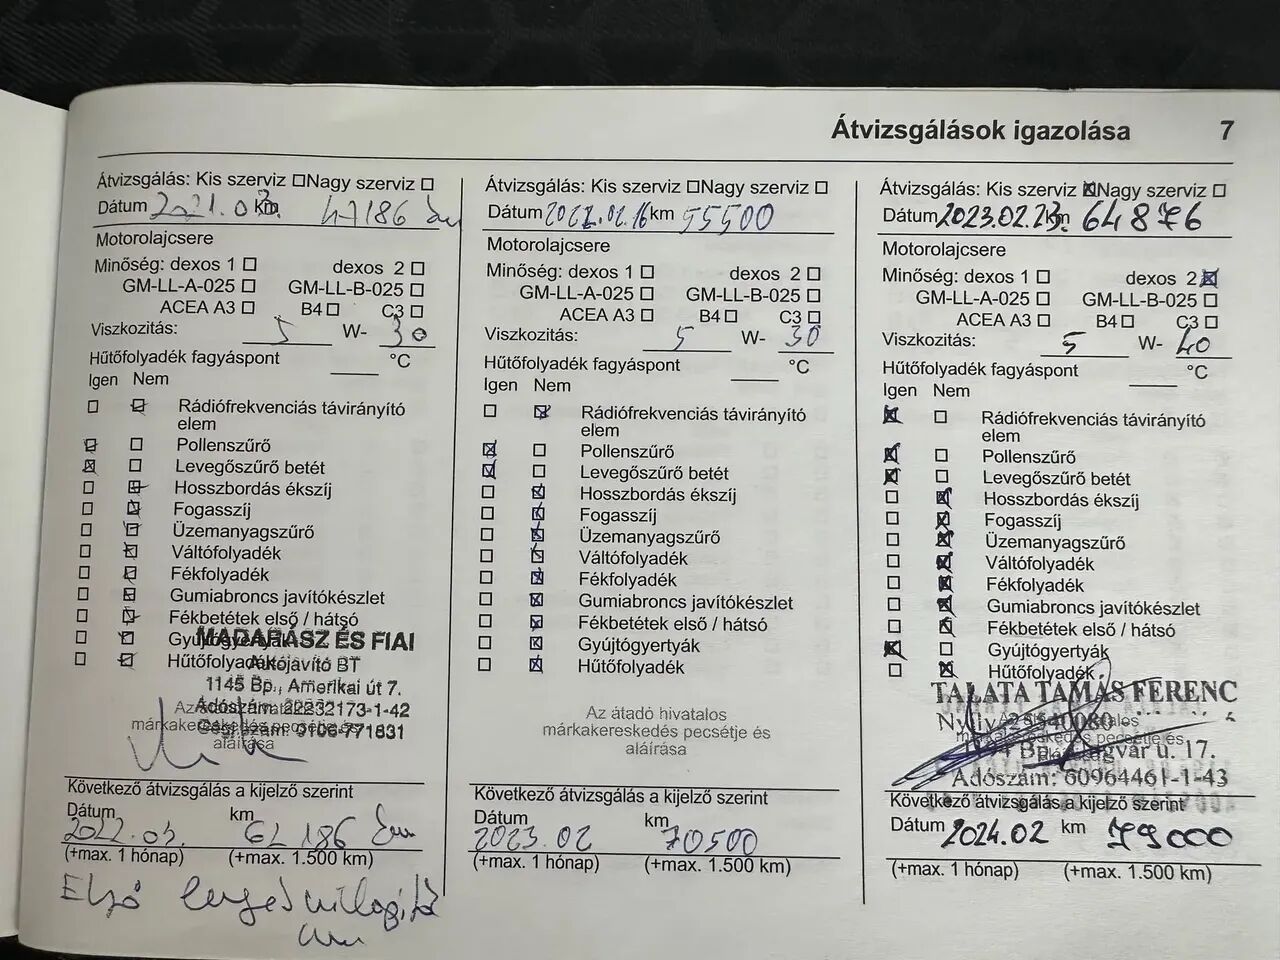 Átvizsgálások igazolása 7
Átvizsgálás: Kis szerviz ☐Nagy szerviz ☐
Dátum 2021.03. km 47186
Motorolajcsere
Minőség: dexos 1 ☐ dexos 2 ☐
GM-LL-A-025 ☐ GM-LL-B-025 ☐
ACEA A3 ☐ B4 ☐ C3 ☐
Viszkozitás: 5 W- 30
Hűtőfolyadék fagyáspont °C
Igen Nem
Rádiófrekvenciás távirányító
elem
Pollenszűrő
Levegőszűrő betét
Hosszbordás ékszíj
Fogasszíj
Üzemanyagszűrő
Váltófolyadék
Fékfolyadék
Gumiabroncs javítókészlet
Fékbetétek első / hátsó
Gyújtógyertyák
Hűtőfolyadék
MADARÁSZ ÉS FIAI
Autójavító BT
1145 Bp., Amerikai út 7.
Adószám: 22232173-1-42
Cégj.szám: 0106-771831
Következő átvizsgálás a kijelző szerint
Dátum 2022.03. km 62186
(+max. 1 hónap) (+max. 1.500 km)
Első
Átvizsgálás: Kis szerviz ☐Nagy szerviz ☐
Dátum 2022.02.16 km 55500
Motorolajcsere
Minőség: dexos 1 ☐ dexos 2 ☐
GM-LL-A-025 ☐ GM-LL-B-025 ☐
ACEA A3 ☐ B4 ☐ C3 ☐
Viszkozitás: 5 W- 30
Hűtőfolyadék fagyáspont °C
Igen Nem
Rádiófrekvenciás távirányító
elem
Pollenszűrő
Levegőszűrő betét
Hosszbordás ékszíj
Fogasszíj
Üzemanyagszűrő
Váltófolyadék
Fékfolyadék
Gumiabroncs javítókészlet
Fékbetétek első / hátsó
Gyújtógyertyák
Hűtőfolyadék
Az átadó hivatalos
márkakereskedés pecsétje és
aláírása
Következő átvizsgálás a kijelző szerint
Dátum 2023.02 km 70500
(+max. 1 hónap) (+max. 1.500 km)
Átvizsgálás: Kis szerviz ☒Nagy szerviz ☐
Dátum 2023.02.23. km 64876
Motorolajcsere
Minőség: dexos 1 ☐ dexos 2 ☒
GM-LL-A-025 ☐ GM-LL-B-025 ☐
ACEA A3 ☐ B4 ☐ C3 ☐
Viszkozitás: 5 W- 40
Hűtőfolyadék fagyáspont °C
Igen Nem
Rádiófrekvenciás távirányító
elem
Pollenszűrő
Levegőszűrő betét
Hosszbordás ékszíj
Fogasszíj
Üzemanyagszűrő
Váltófolyadék
Fékfolyadék
Gumiabroncs javítókészlet
Fékbetétek első / hátsó
Gyújtógyertyák
Hűtőfolyadék
TALATA TAMÁS FERENC
u. 17.
Adószám: 60964461-1-43
Következő átvizsgálás a kijelző szerint
Dátum 2024.02 km 79000
(+max. 1 hónap) (+max. 1.500 km)